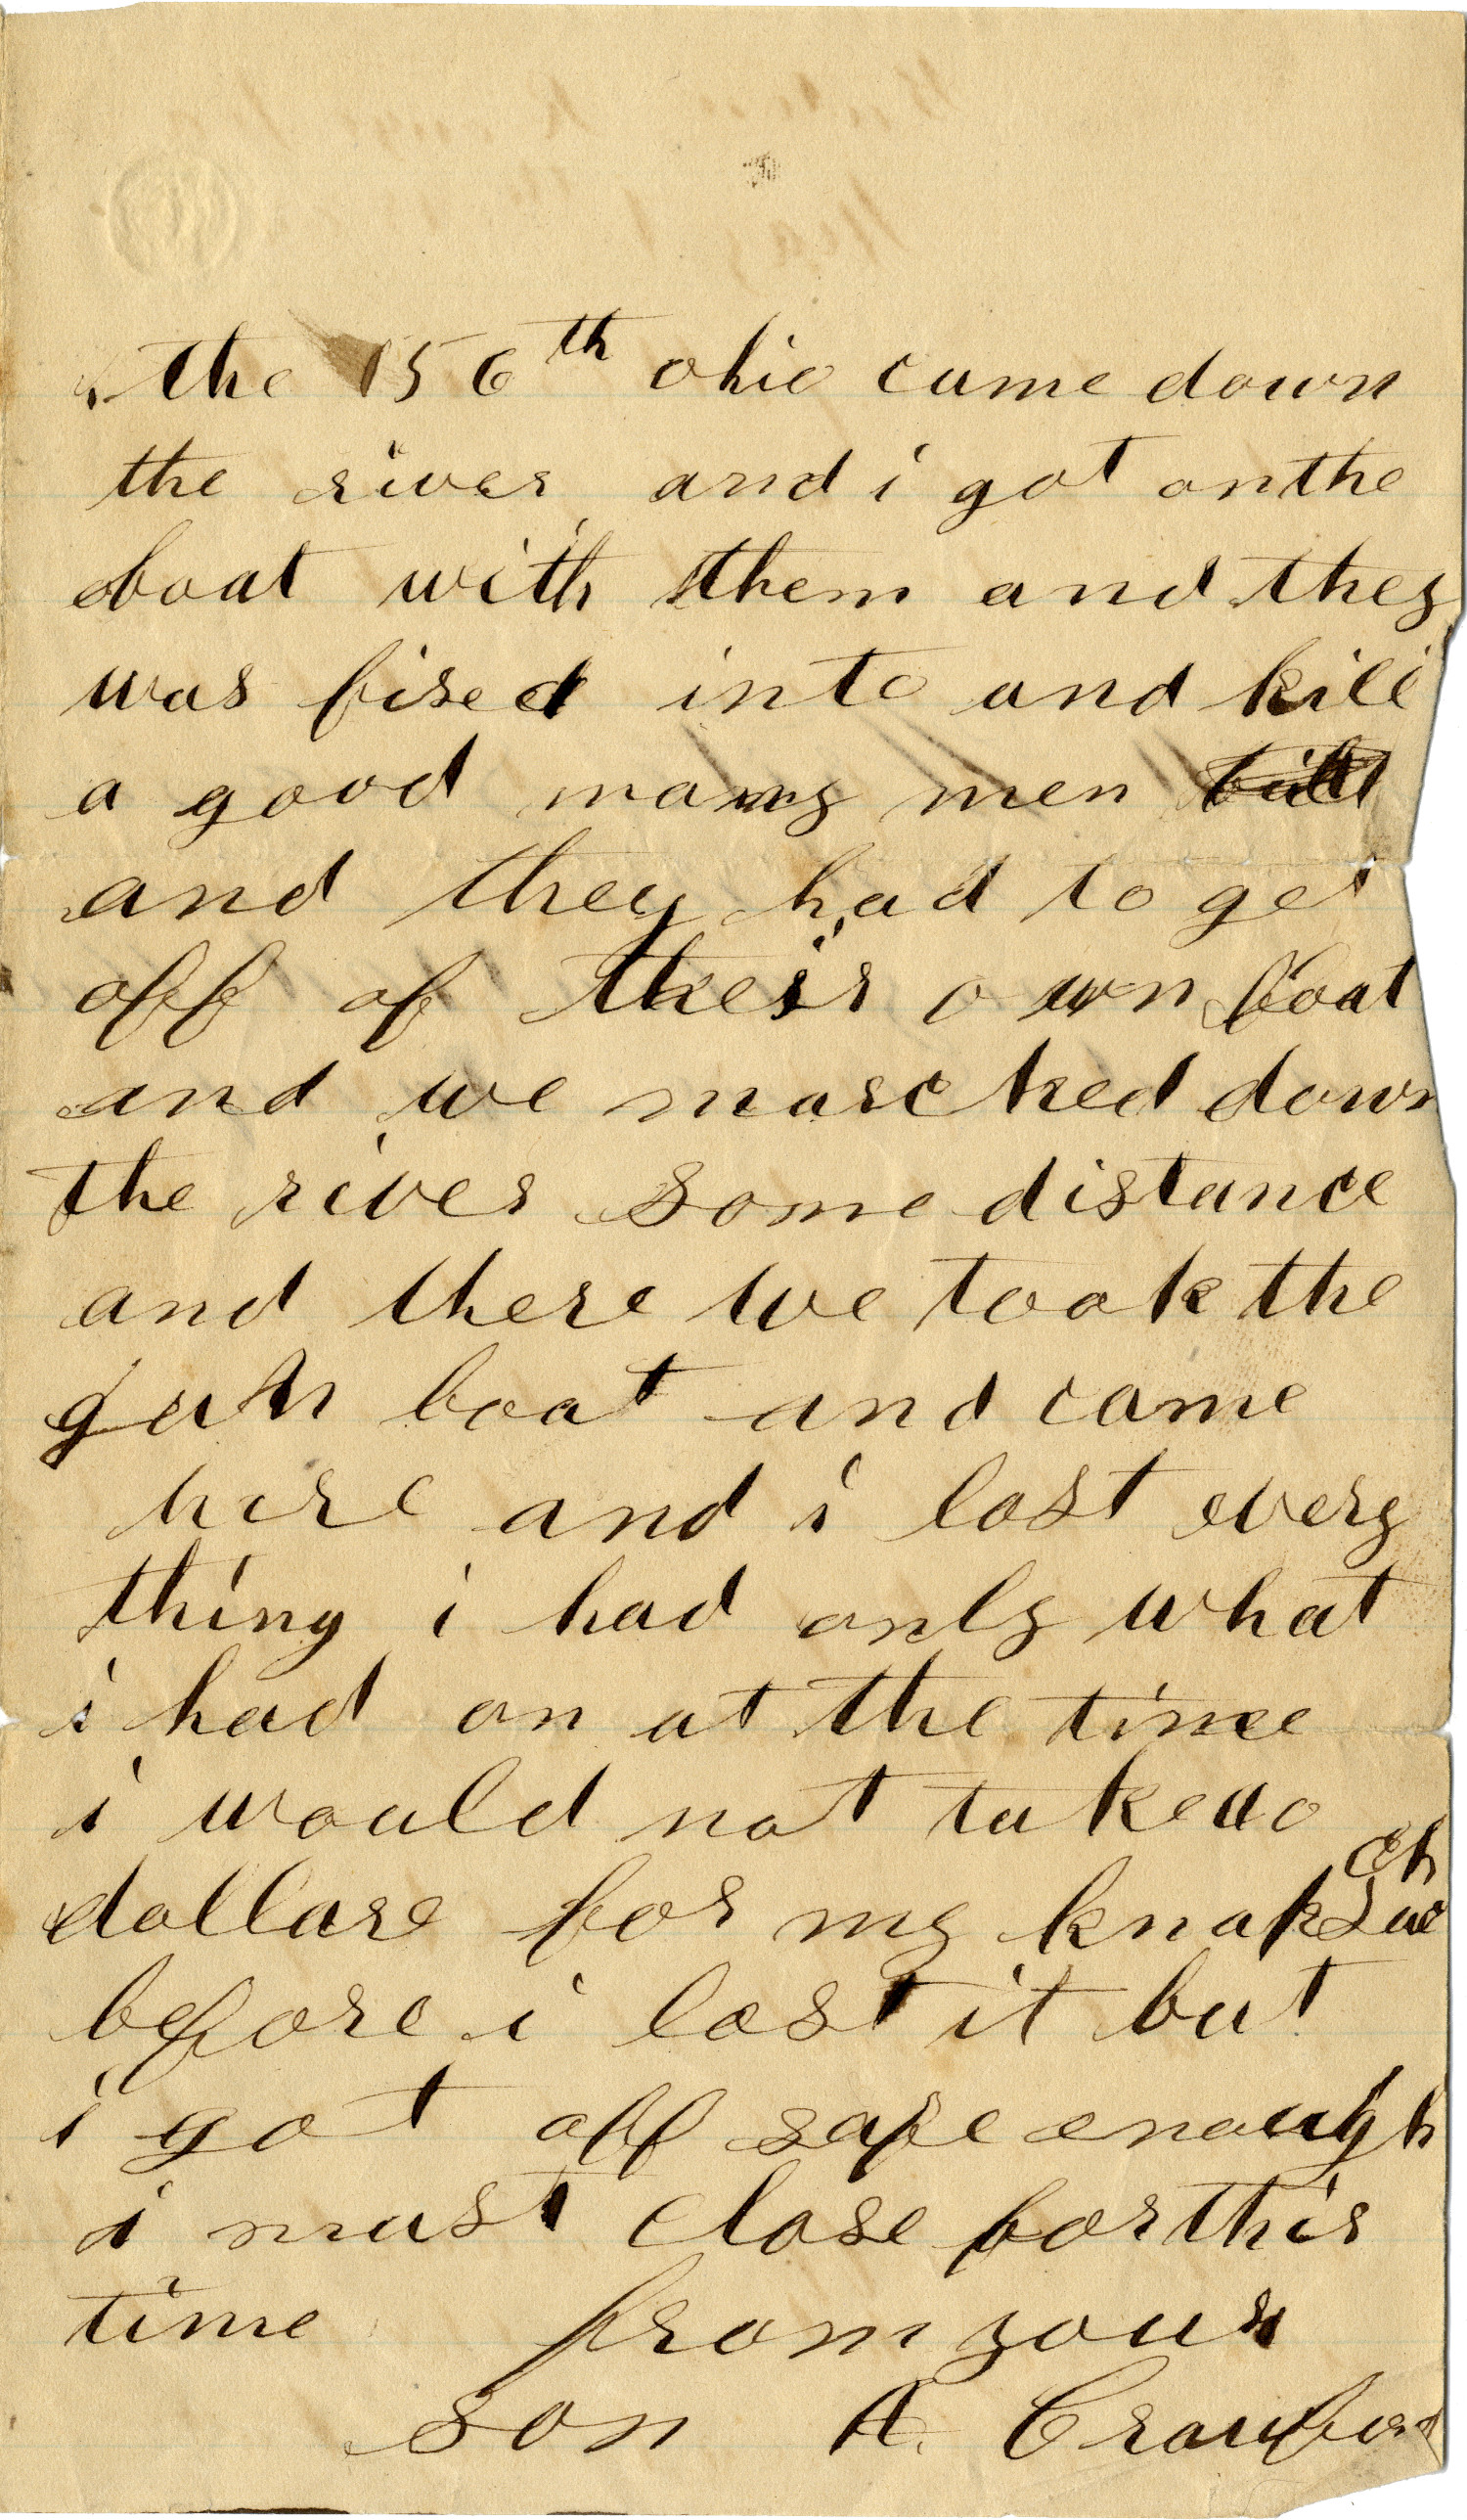 the 156th ohio came down
the river and i got onthe
boat with them and they
was fired into and kill
a good many men
and they had to get
off of their own boat
and we marched down
the river some distance
and there we took the
gun boat and came
here and i lost every
thing i had only what
i had on at the time
i would not take
dollare for my
before i lost it but
i got off safe enough
i must close for this
time from your
son A. Crawford